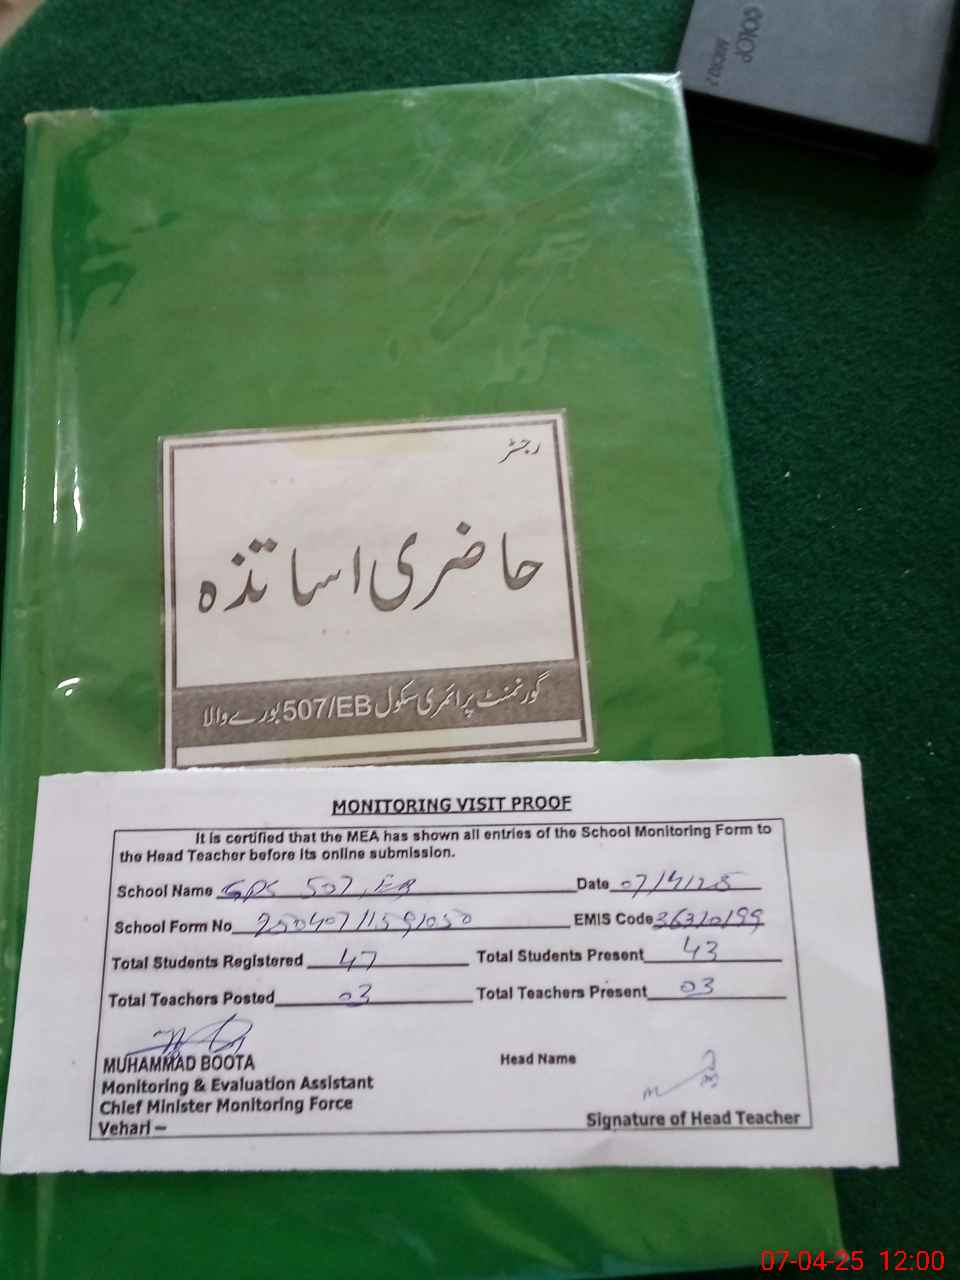 GOLOP
MICRO 2
رجسٹر
حاضری اساتذہ
گورنمنٹ پرائمری سکول 507/EB بورے والا
MONITORING VISIT PROOF
It is certified that the MEA has shown all entries of the School Monitoring Form to
the Head Teacher before its online submission.
School Name GPS 507, EB Date 07/4/25
School Form No 25040711591050 EMIS Code 36320199
Total Students Registered 47 Total Students Present 43
Total Teachers Posted 03 Total Teachers Present 03
MUHAMMAD BOOTA Head Name
Monitoring & Evaluation Assistant
Chief Minister Monitoring Force
Vehari – Signature of Head Teacher
07-04-25 12:00